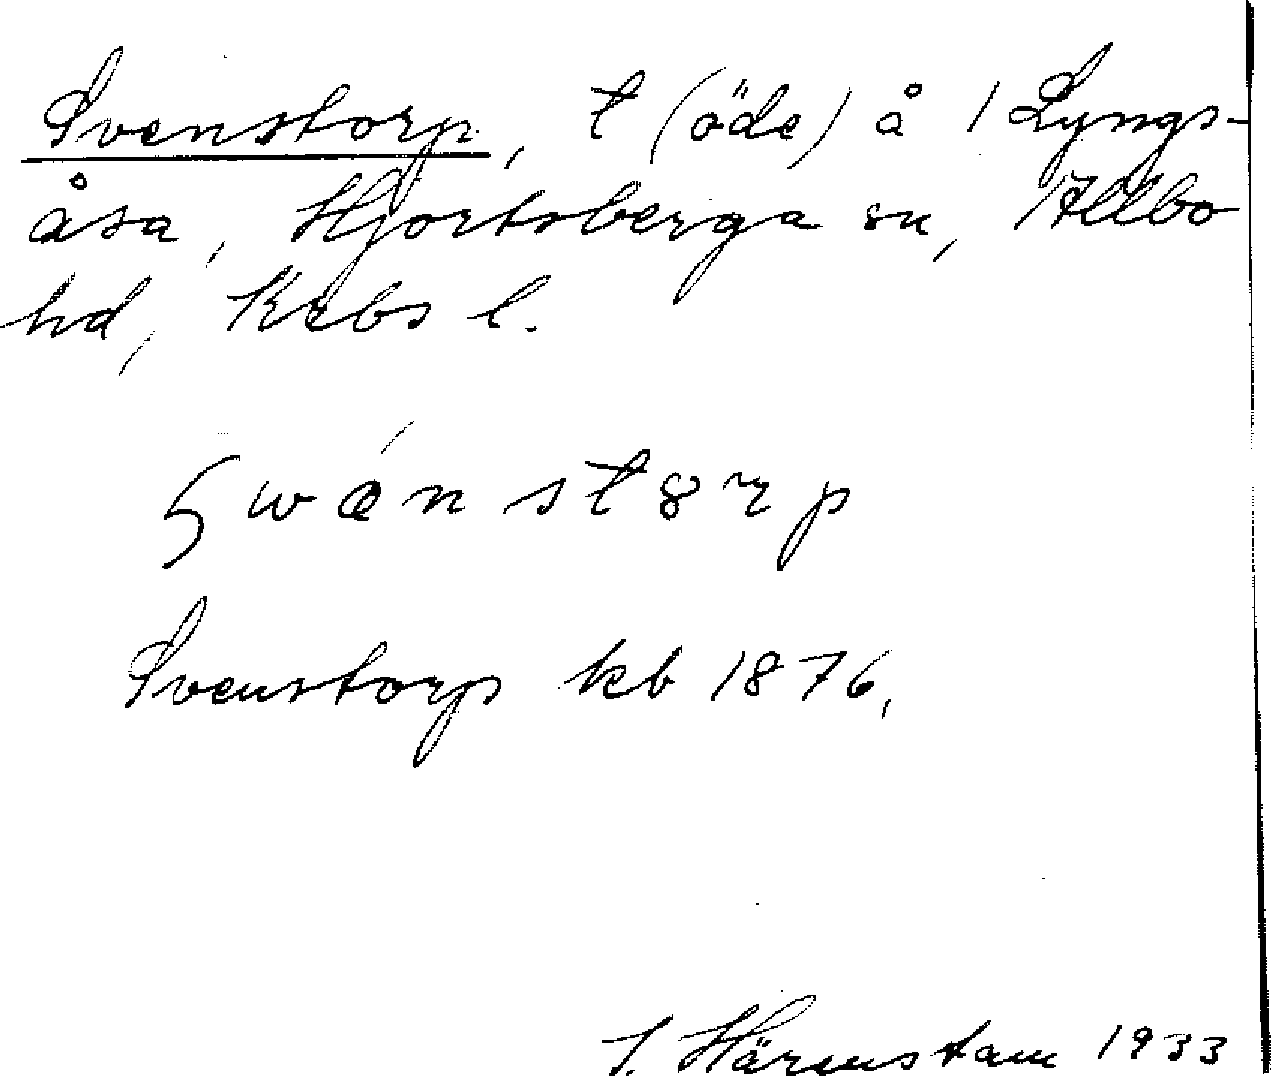 Svenstorp, t (öde) å 1 Lyngs-
åsa, Hjortsberga sn, Allbo
hd, Krbs l.
swæ´nst8rp
Svenstorp kb 1876,
Härenstam 1933